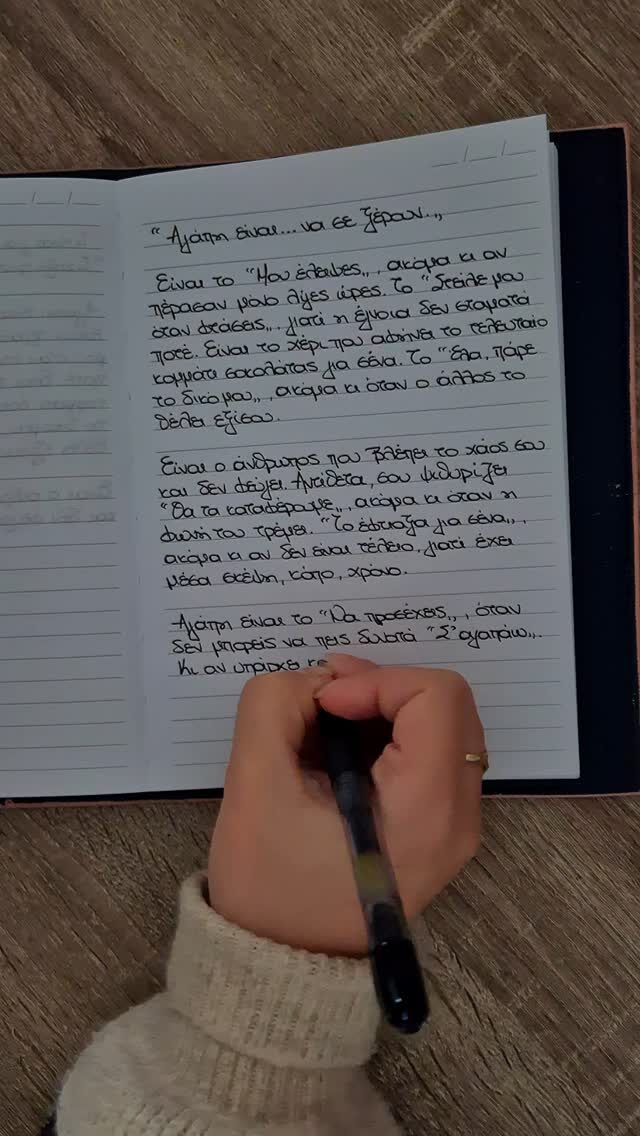 “Αγάπη είναι... να σε ξέρουν..„
Είναι το “Μου έλειψες„, ακόμα κι αν
πέρασαν μόνο λίγες ώρες. Το “Στείλε μου
όταν φτάσεις„, γιατί η έγνοια δεν σταματά
ποτέ. Είναι το χέρι που αφήνει το τελευταίο
κομμάτι σοκολάτας για σένα. Το “Έλα, πάρε
το δικό μου„, ακόμα κι όταν ο άλλος το
θέλει εξίσου.
Είναι ο άνθρωπος που βλέπει το χάος σου
και δεν φεύγει. Αντίθετα, σου ψιθυρίζει
“Θα τα καταφέρουμε„, ακόμα κι όταν η
φωνή του τρέμει. “Το έφτιαξα για σένα„,
ακόμα κι αν δεν είναι τέλειο, γιατί έχει
μέσα σκέψη, κόπο, χρόνο.
Αγάπη είναι το “Να προσέχεις„, όταν
δεν μπορείς να πεις δυνατά “Σ’αγαπάω„.
Κι αν υπάρχει